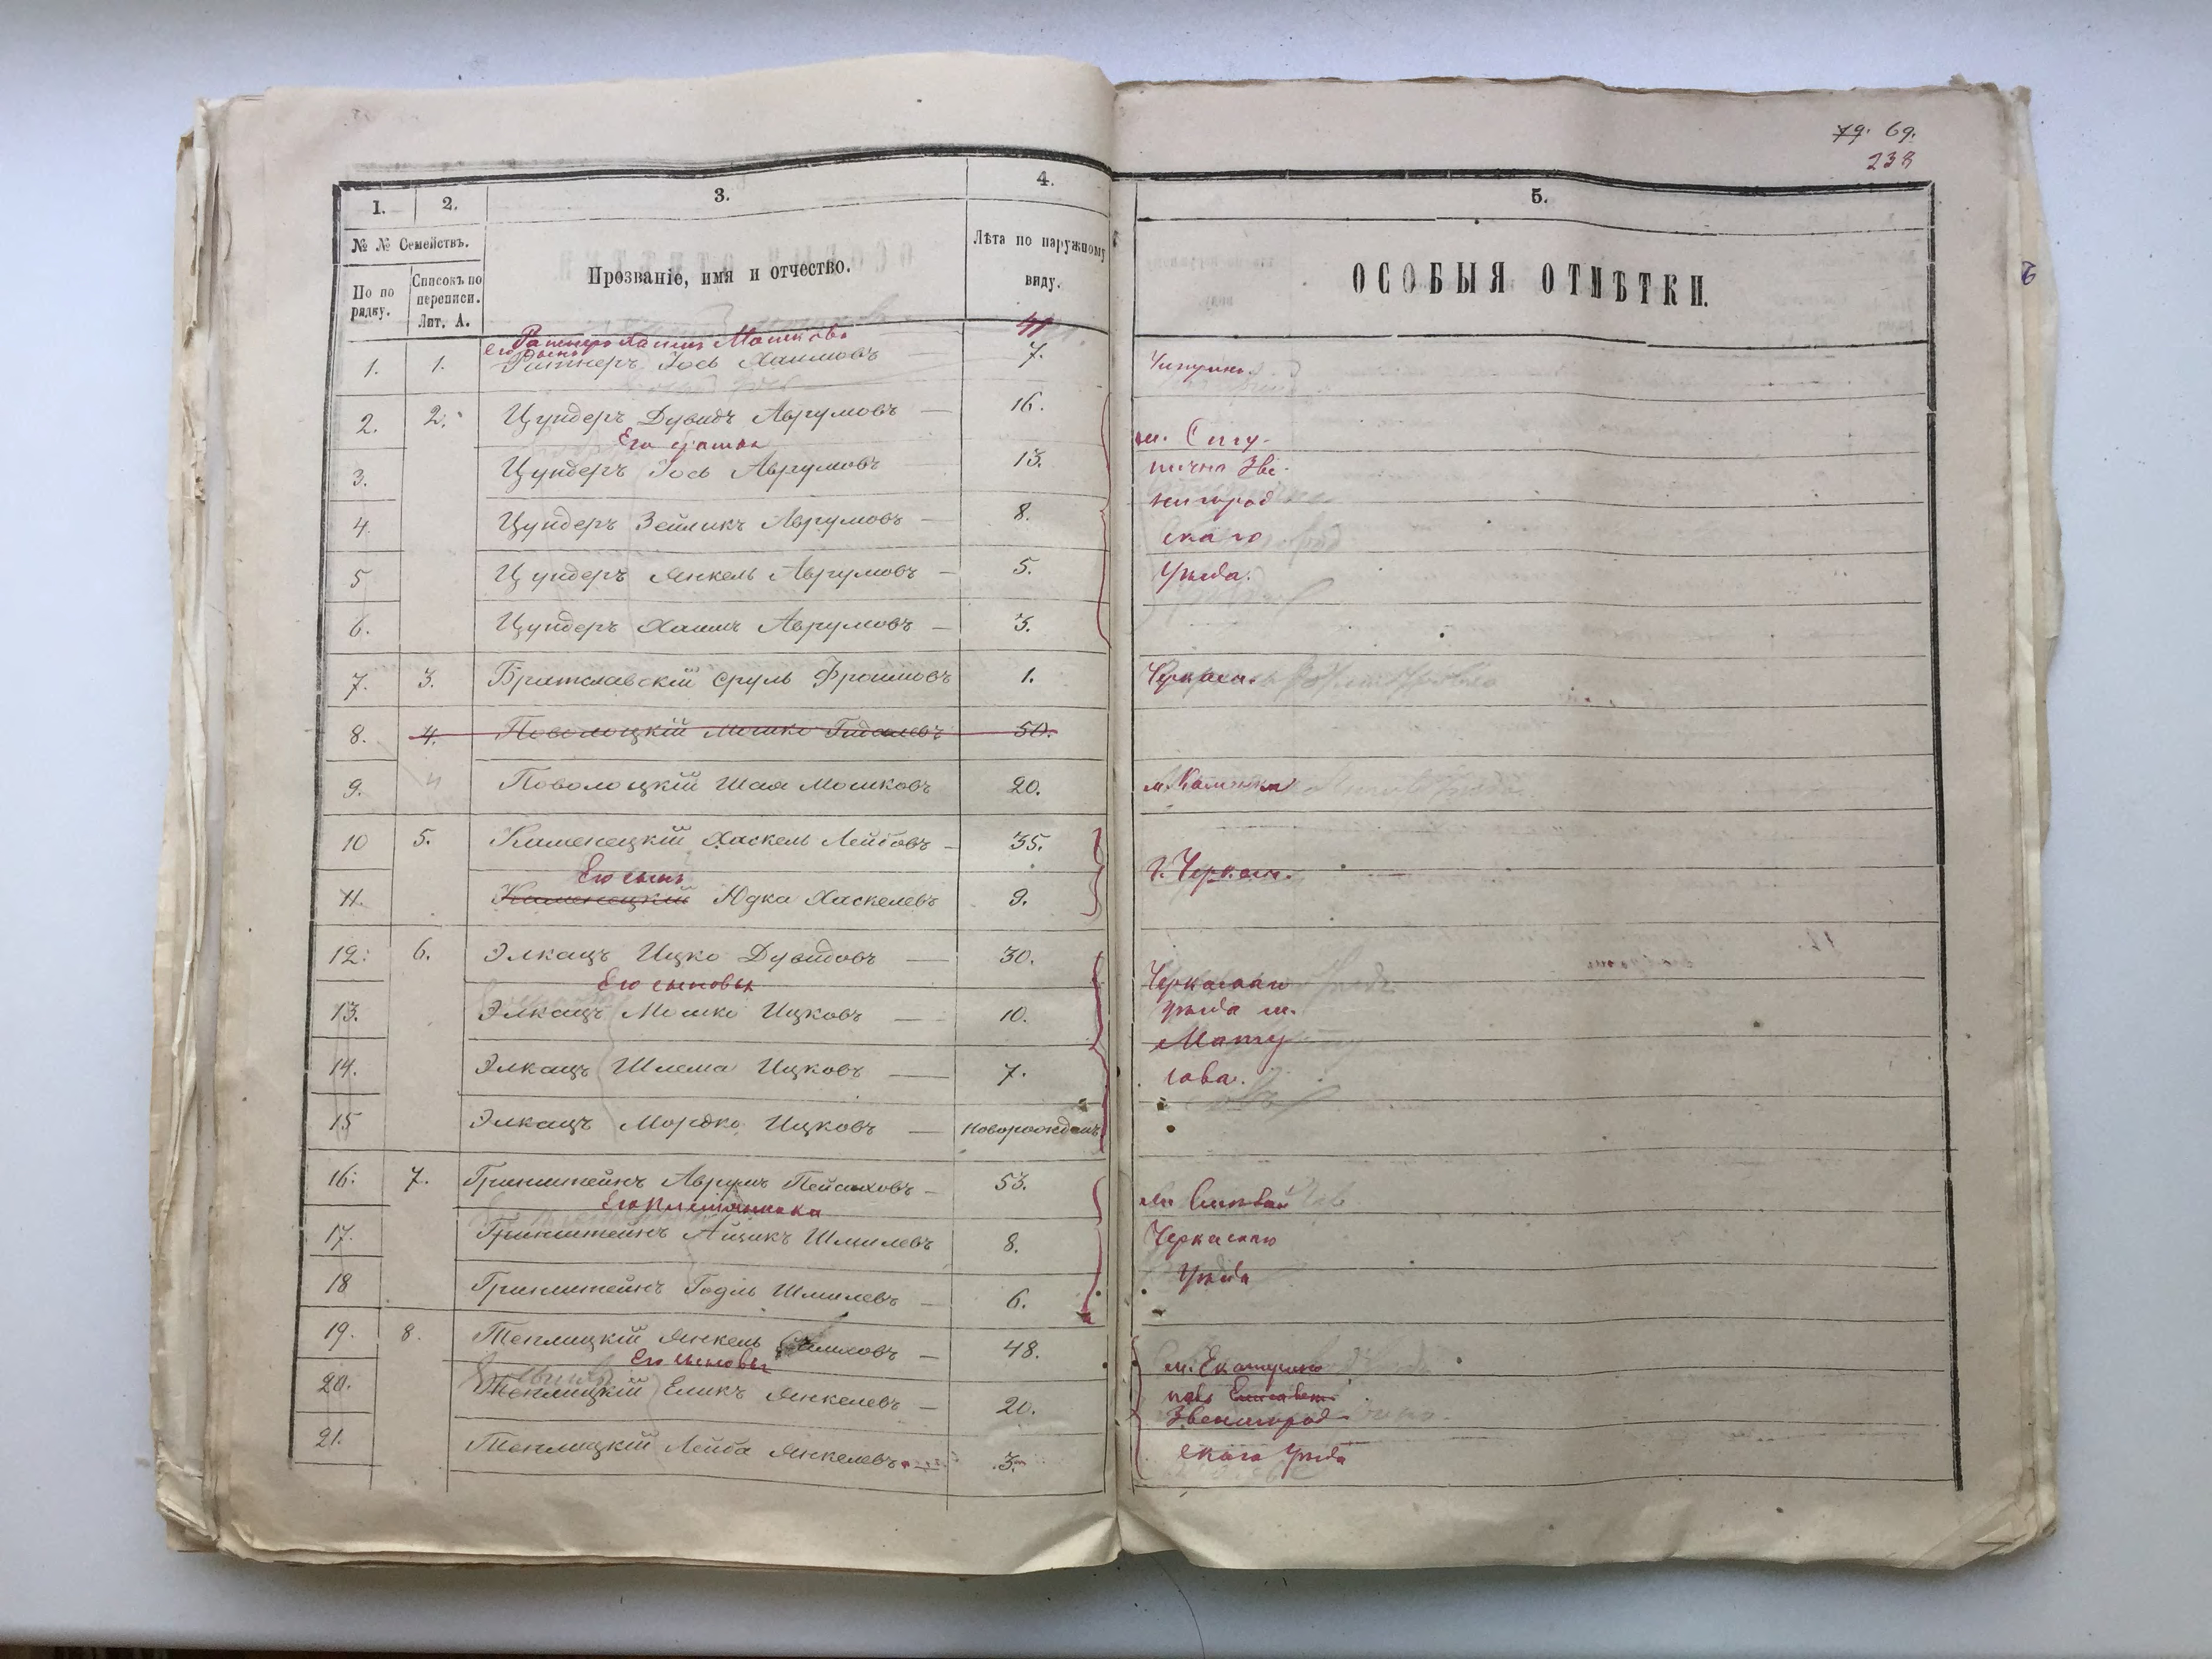 79. 69.
239
1. 2. 3. 4. 5.
№ № Семействъ.
По по рядку.
Списокъ по переписи. Лит. А.
Прозваніе, имя и отчество.
Лѣта по наружному виду.
ОСОБЫЯ ОТМѢТКИ.
Ратнеръ Хаимъ Мошковъ 41
его сынъ
1. 1. Ратнеръ Іось Хаимовъ 7. Чигринъ.
2. 2. Цундеръ Дувидъ Аврумовъ — 16.
Его братья
м.
3. Цундеръ Іось Аврумовъ 13. Зве-
4. Цундеръ Зейликъ Аврумовъ — 8. нигород
скаго
5 Цундеръ Янкель Аврумовъ — 5. Уѣзда.
6. Цундеръ Хаимъ Аврумовъ — 3.
7. 3. Братславскій Сруль Фроимовъ 1. Черкасы.
8. 4. Поволоцкій Мошко Гидалевъ 50.
9. 4 Поволоцкій Шая Мошковъ 20. м. Каменка
10 5. Каменецкій Хаскель Лейбовъ — 35.
Его сынъ
г. Черкасы.
11. Каменецкій Юдка Хаскелевъ 9.
12. 6. Элкацъ Ицко Дувидовъ — 30.
Его сыновья
Черкасскаго
13. Элкацъ Мошко Ицковъ — 10. уѣзда м.
Мату
14. Элкацъ Шлема Ицковъ — 7. сова.
15 Элкацъ Мордко Ицковъ — новорожденъ
16. 7. Гринштейнъ Аврумъ Пейсаховъ — 53.
Его племянники
м.
17. Гринштейнъ Айзикъ Шмилевъ 8. Черкаскаго
Уѣзда
18 Гринштейнъ Годль Шмилевъ — 6.
19. 8. Теплицкій Янкель — 48.
Его сыновья
м. Екатерино
20. Теплицкій Еликъ Янкелевъ — 20. поль
Звенигород
21. Теплицкій Лейба Янкелевъ 3. скаго Уѣзда